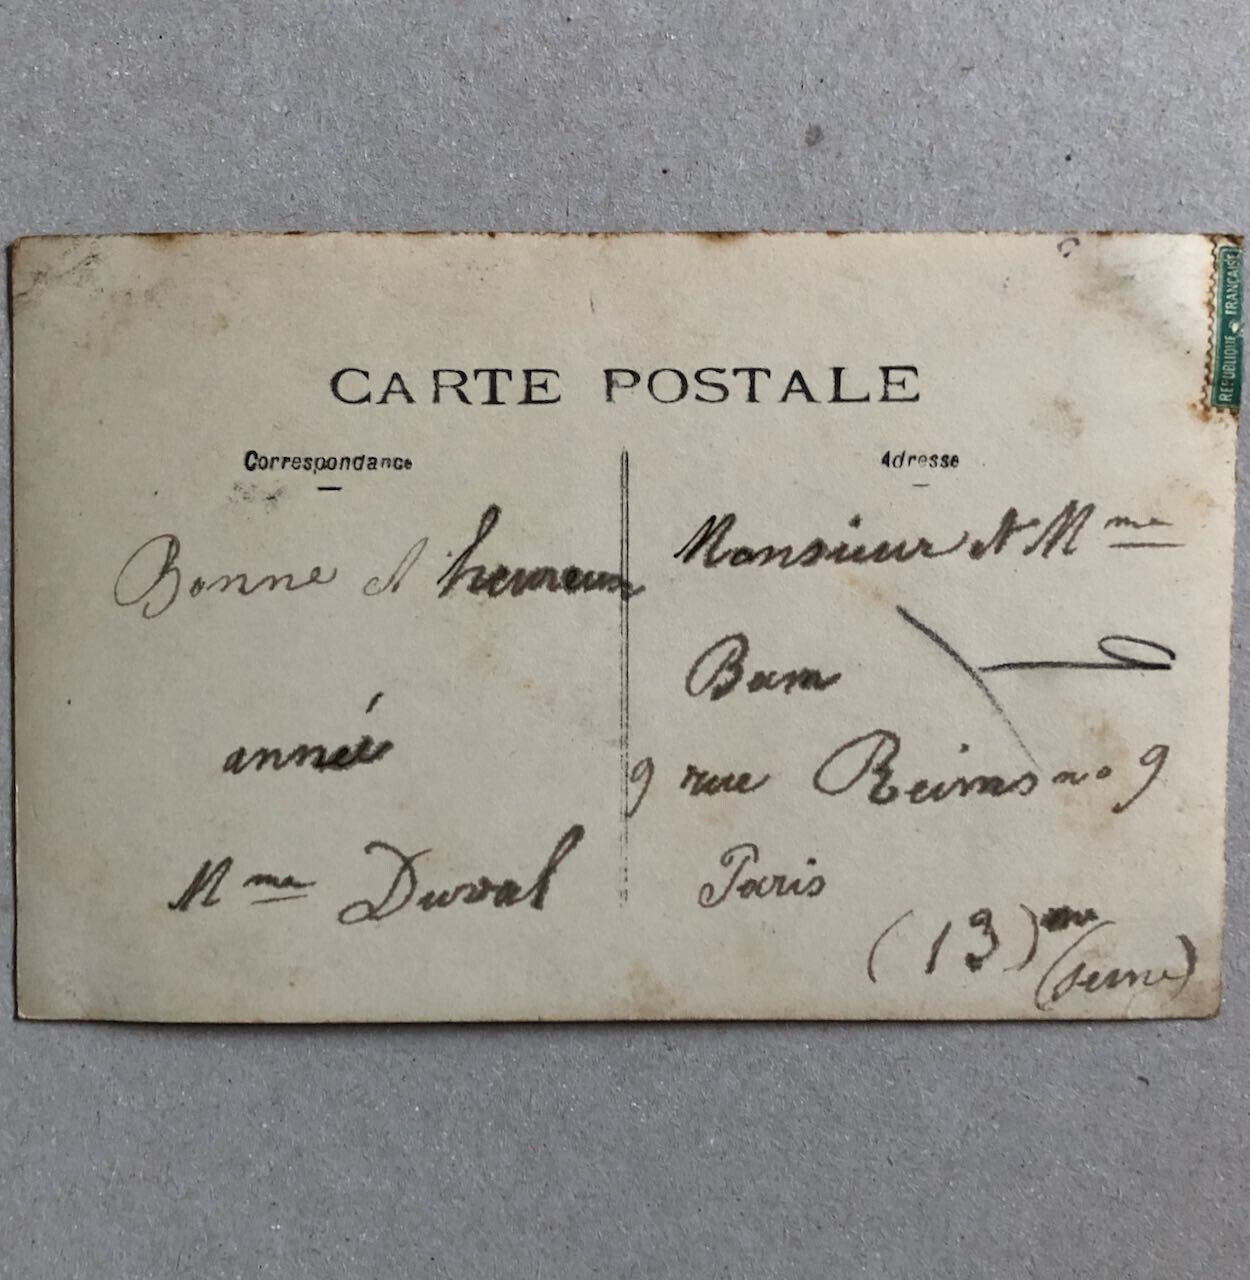 REPUBLIQUE FRANÇAISE
CARTE POSTALE
Correspondance
Bonne et heureux
année
Mme Duval
Adresse
Monsieur et Mme
Bam
9 rue Reims no 9
Paris
(13)me
(Seine)